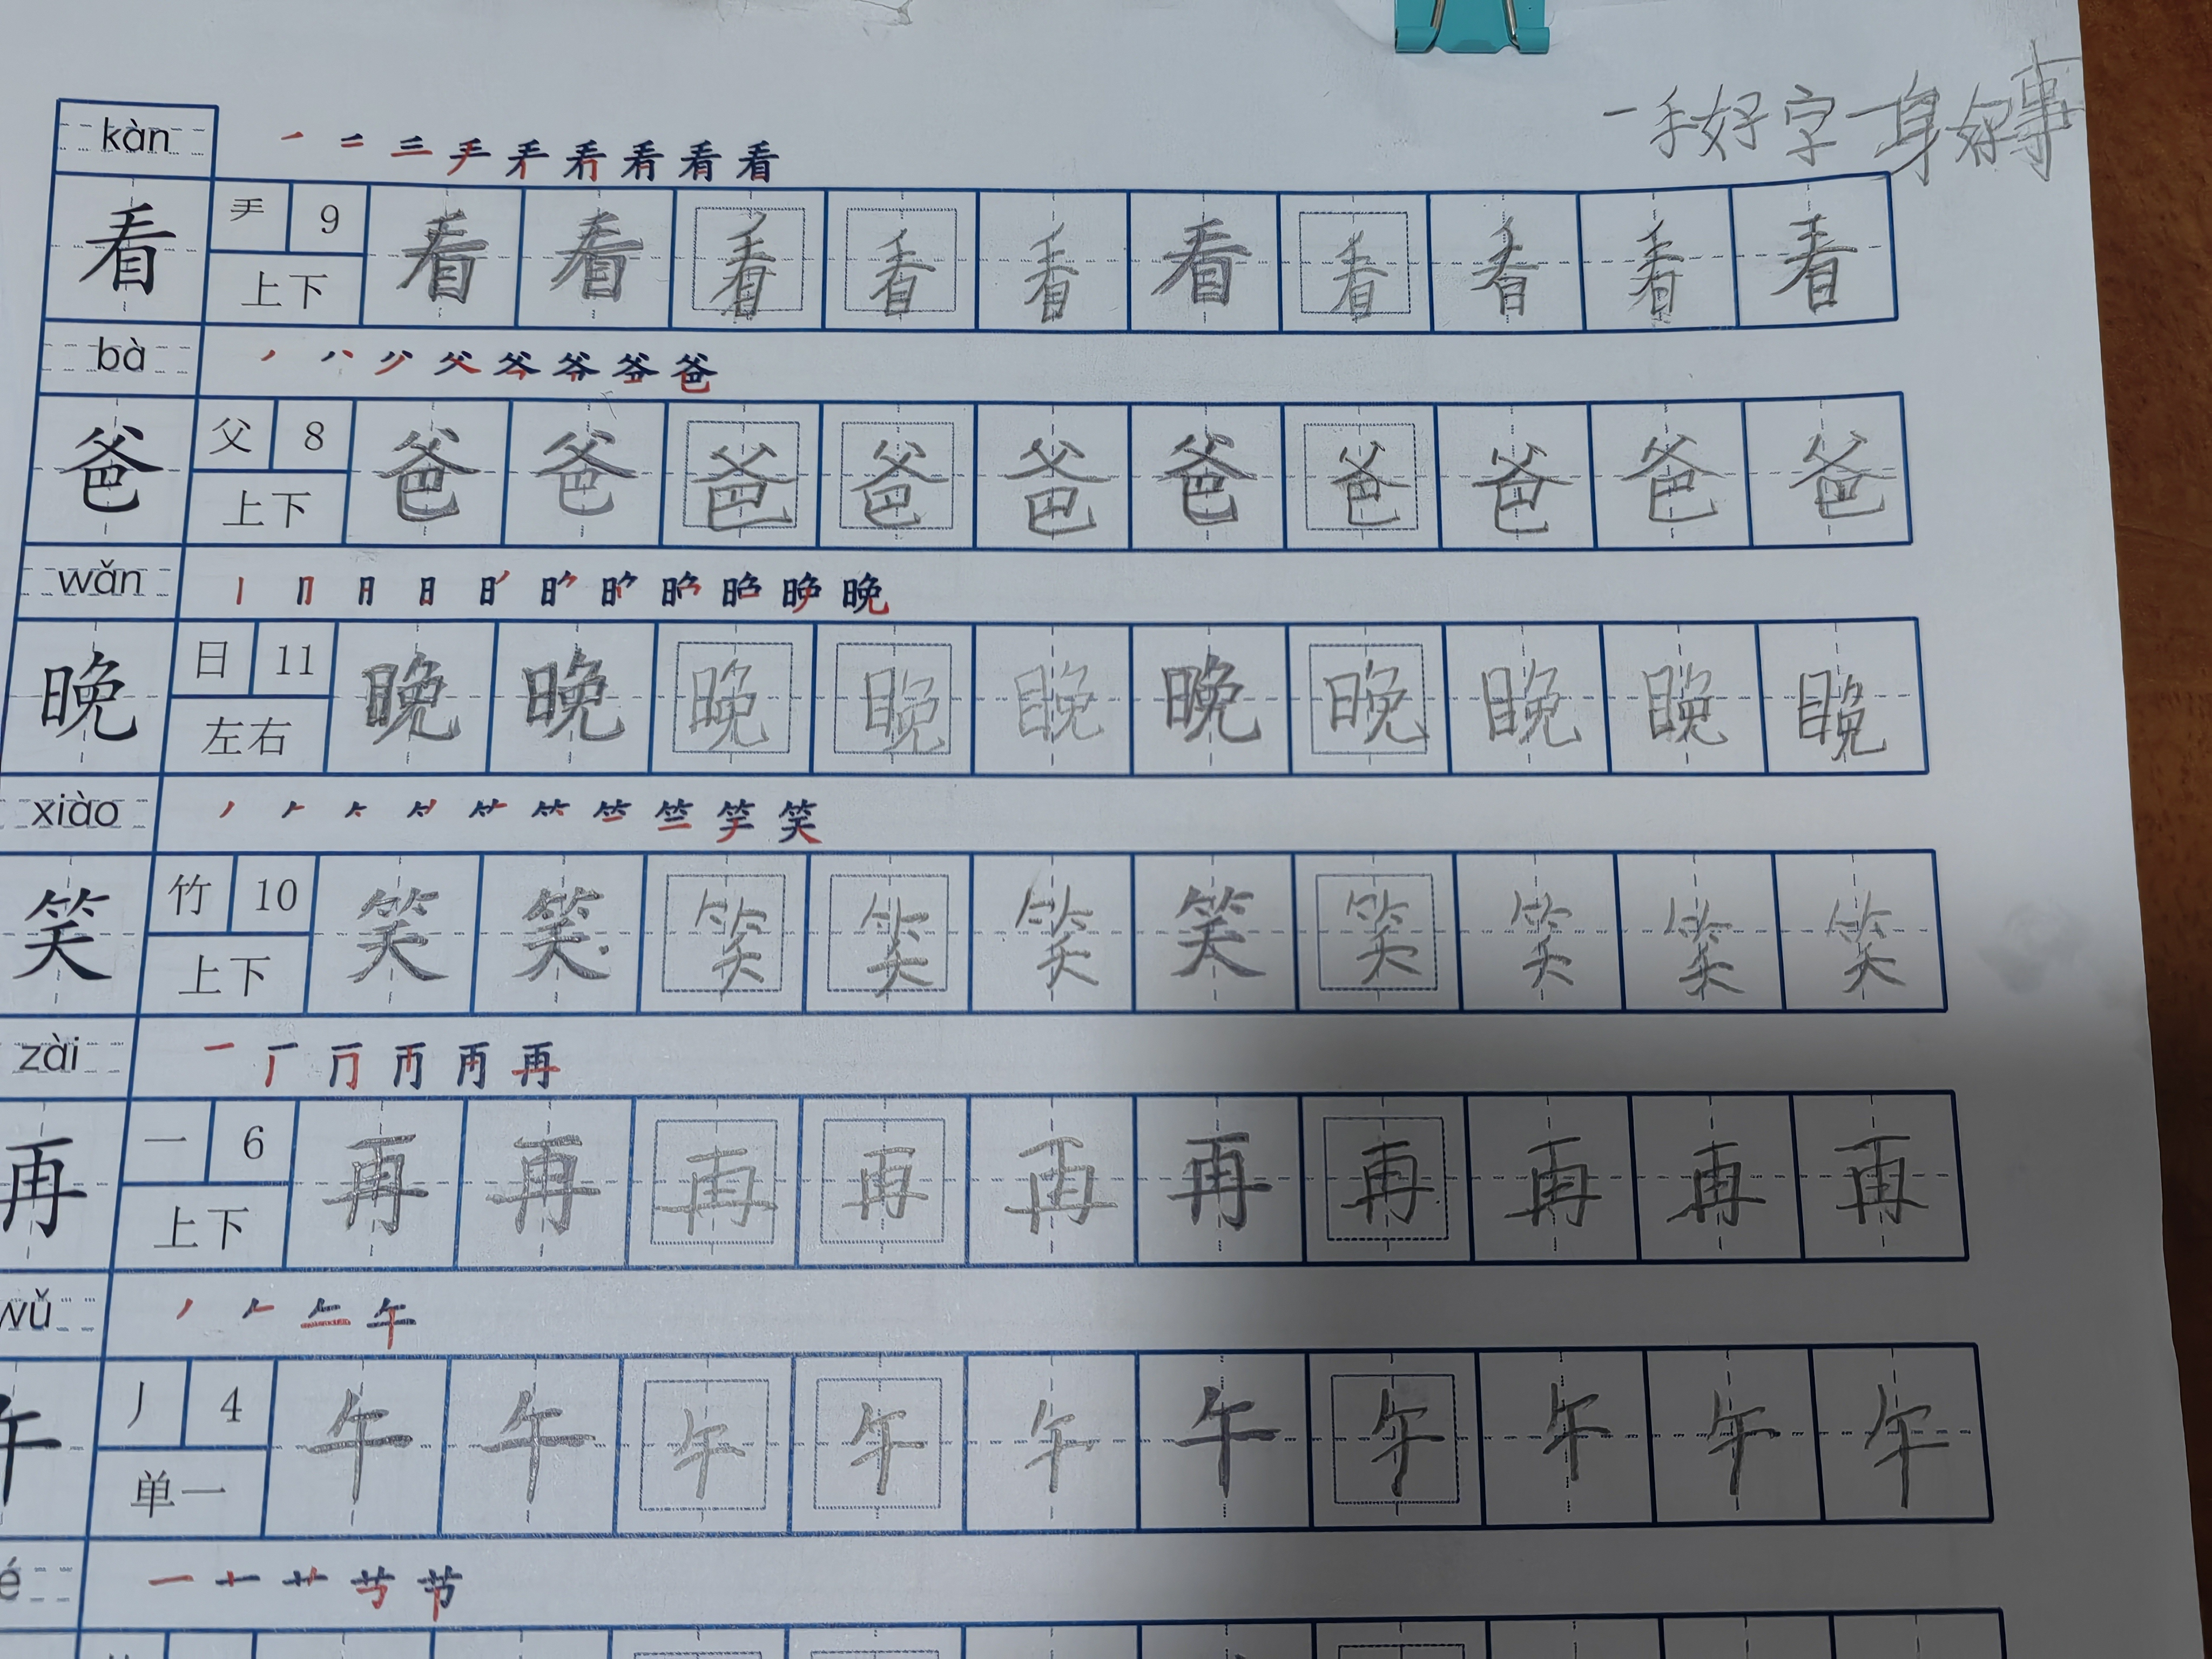 一手好字一身好事
kàn
一 二 三 手 看 看 看 看 看
看 龵 9 看 看 看 看 看 看 看 看 看 看
上下
bà
丿 八 父 爸 爸
爸 父 8 爸 爸 爸 爸 爸 爸 爸 爸 爸 爸
上下
wǎn
丨 冂 日 日 晚 晚
晚 日 11 晚 晚 晚 晚 晚 晚 晚 晚 晚 晚
左右
xiào
丿 𠂉 竺 笑
笑 竹 10 笑 笑 笑 笑 笑 笑 笑 笑 笑 笑
上下
zài
一 丆 再
再 一 6 再 再 再 再 再 再 再 再 再 再
上下
wǔ
丿 𠂉 午
午 丿 4 午 午 午 午 午 午 午 午 午 午
单一
é
一 十 艹 节